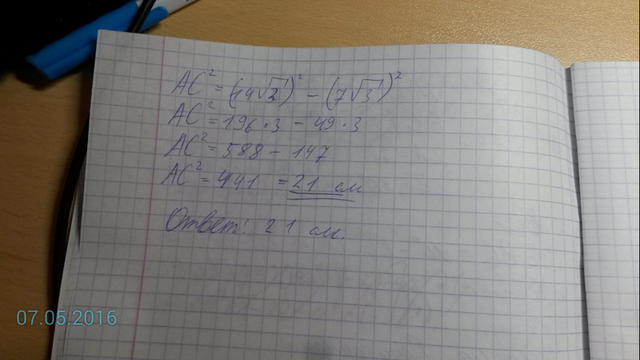 AC² = (14√2)² − (7√3)²
AC² = 196·3 − 49·3
AC² = 588 − 147
AC² = 441 = 21 см
Ответ: 21 см.
07.05.2016